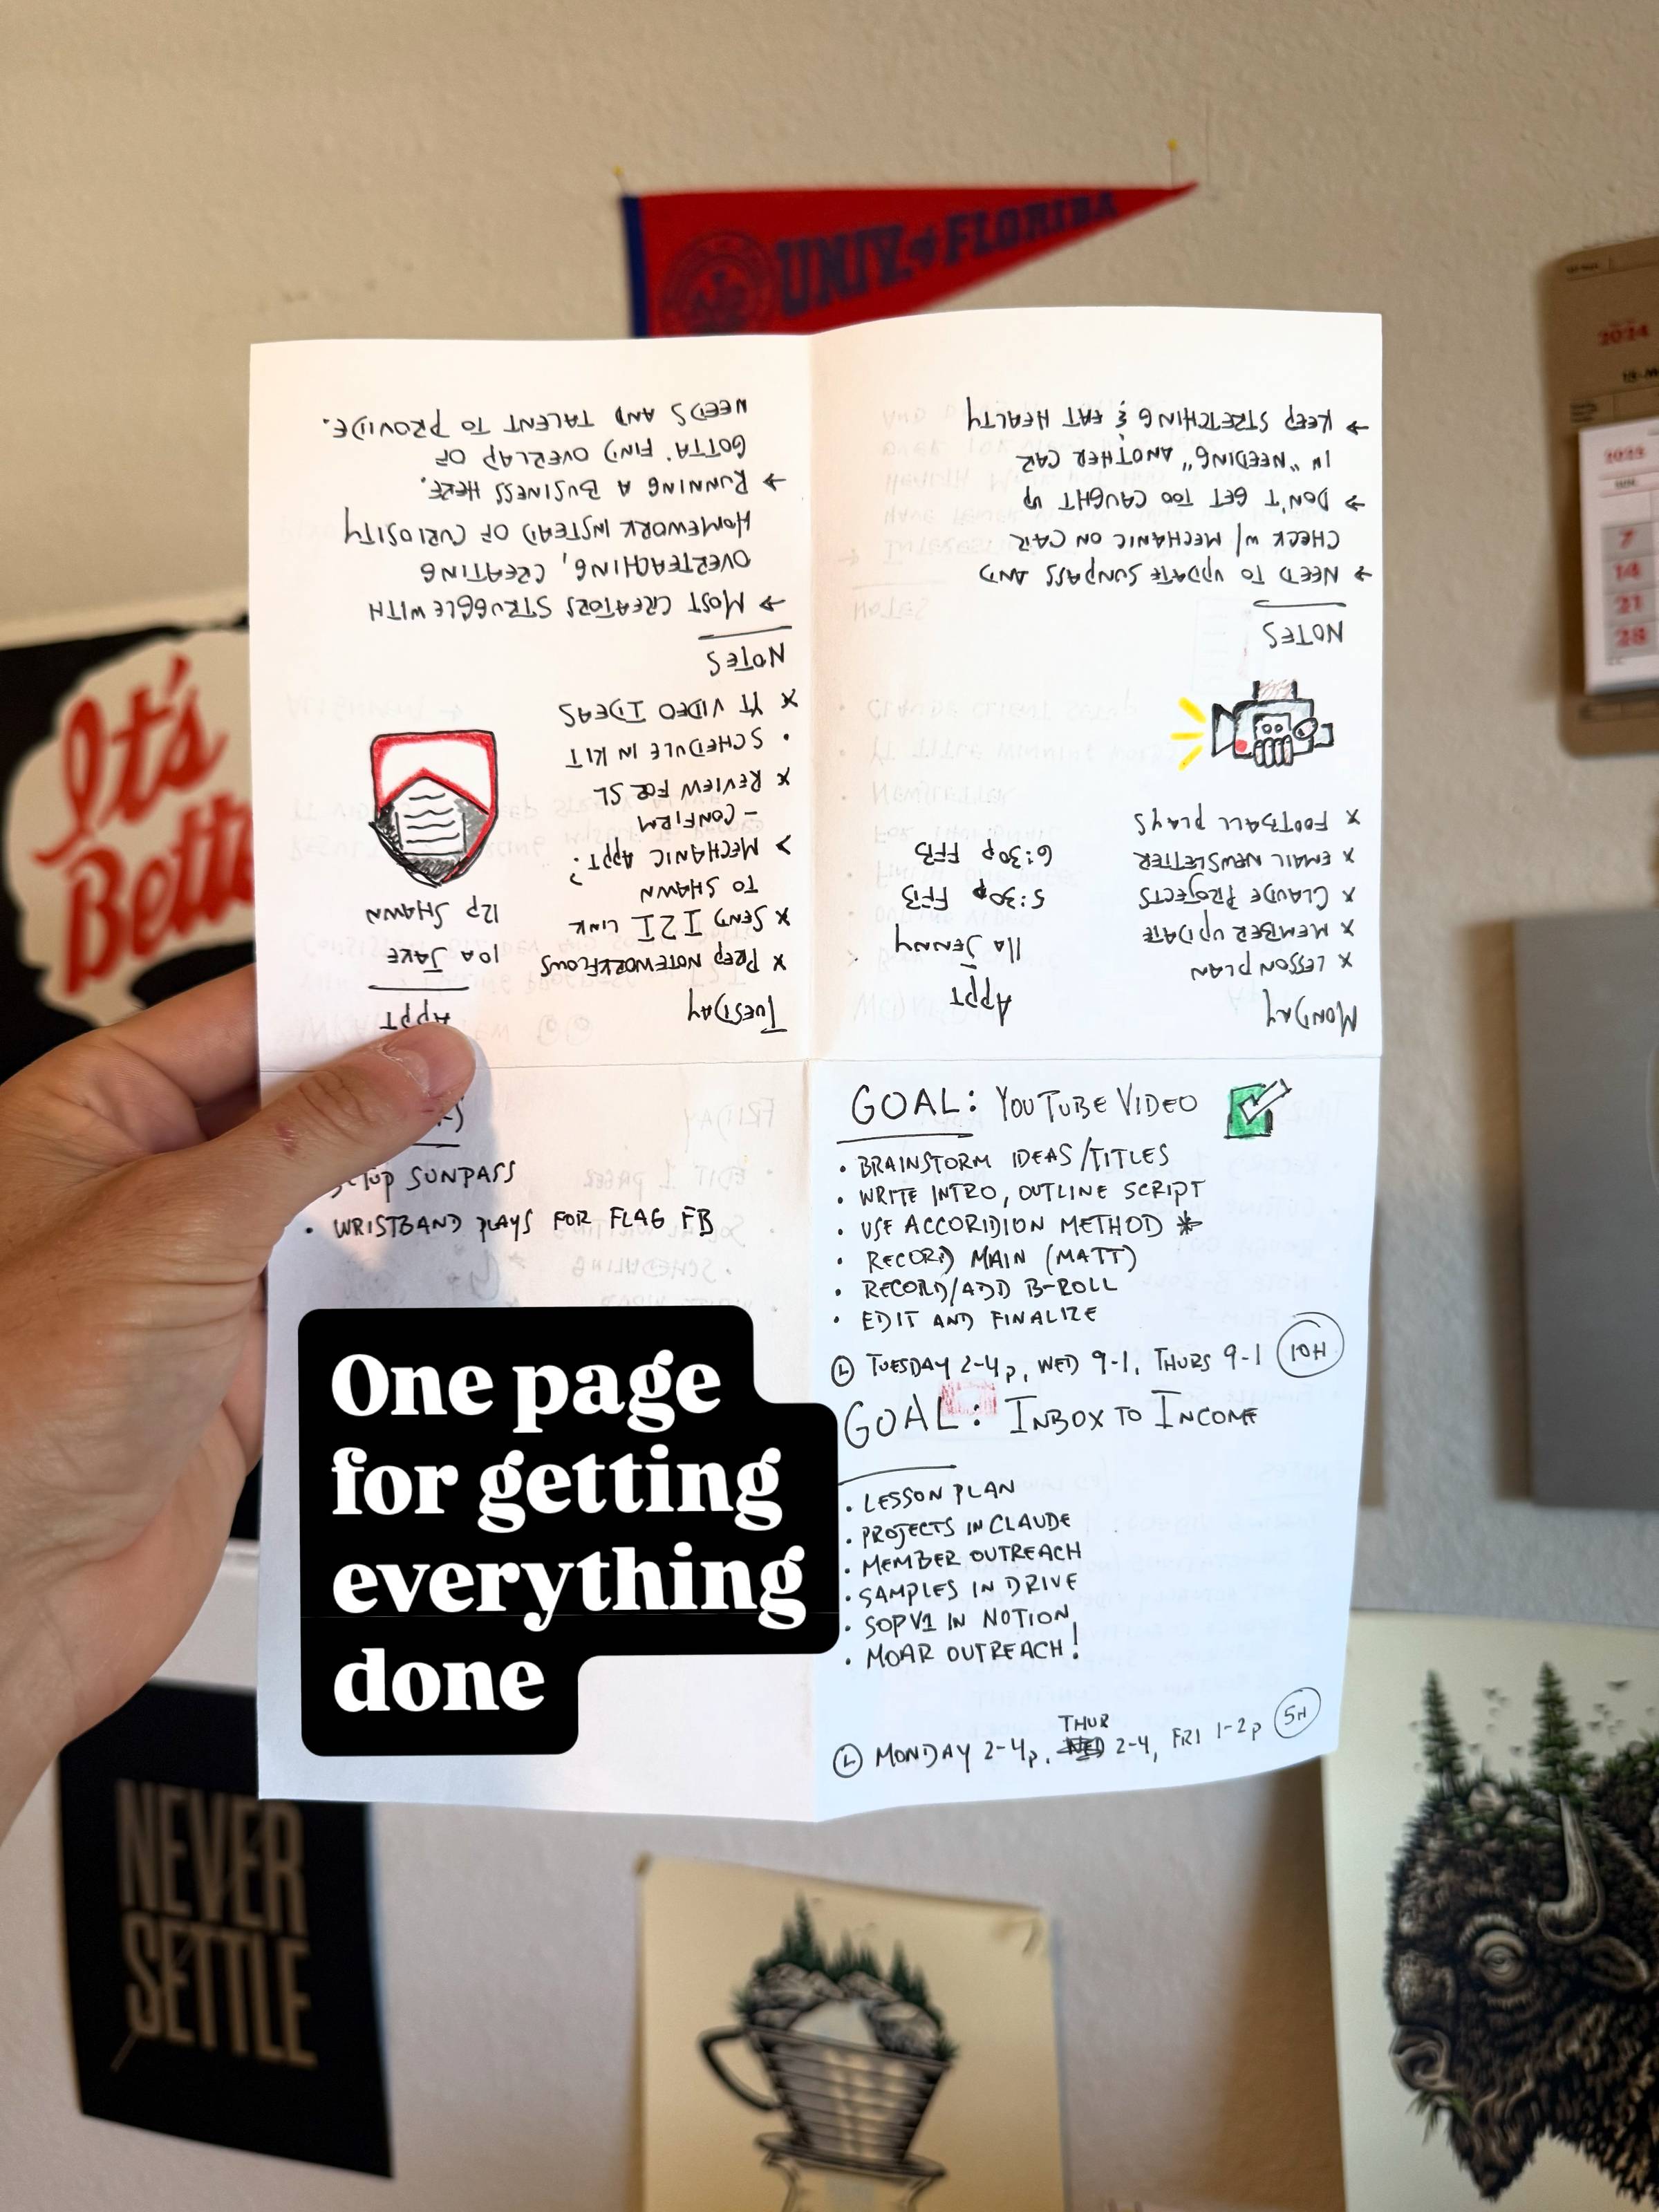 UNIV. of FLORIDA
2024
2025
7
14
21
28
It's
Better
MONDAY
× LESSON PLAN
× MEMBER UPDATE
× CLAUDE PROJECTS
× EMAIL NEWSLETTER
× FOOTBALL PLAYS
APPT
11a JENNY
5:30p FFB
6:30p FFB
NOTES
→ NEED TO UPDATE SUNPASS AND
CHECK w/ MECHANIC ON CAR
→ DON'T GET TOO CAUGHT UP
IN "NEEDING" ANOTHER CAR
→ KEEP STRETCHING & EAT HEALTHY
TUESDAY
× PREP NOTEWORKFLOWS
× SEND I2I LINK
TO SHAWN
> MECHANIC APPT?
- CONFIRM
× REVIEW FOR SL
• SCHEDULE IN KIT
× YT VIDEO IDEAS
APPT
10a JAKE
12p SHAWN
NOTES
→ MOST CREATORS STRUGGLE WITH
OVERTEACHING, CREATING
HOMEWORK INSTEAD OF CURIOSITY
→ RUNNING A BUSINESS HERE.
GOTTA' FIND OVERLAP OF
NEEDS AND TALENT TO PROVIDE.
SUNPASS
• WRISTBAND PLAYS FOR FLAG FB
GOAL: YOUTUBE VIDEO
• BRAINSTORM IDEAS/TITLES
• WRITE INTRO, OUTLINE SCRIPT
• USE ACCORIDION METHOD *
• RECORD MAIN (MATT)
• RECORD/ADD B-ROLL
• EDIT AND FINALIZE
TUESDAY 2-4p, WED 9-1, THURS 9-1 10H
GOAL: INBOX TO INCOME
• LESSON PLAN
• PROJECTS IN CLAUDE
• MEMBER OUTREACH
• SAMPLES IN DRIVE
• SOP V1 IN NOTION
• MOAR OUTREACH!
THUR
MONDAY 2-4p, 2-4, FRI 1-2p 5H
One page
for getting
everything
done
NEVER
SETTLE